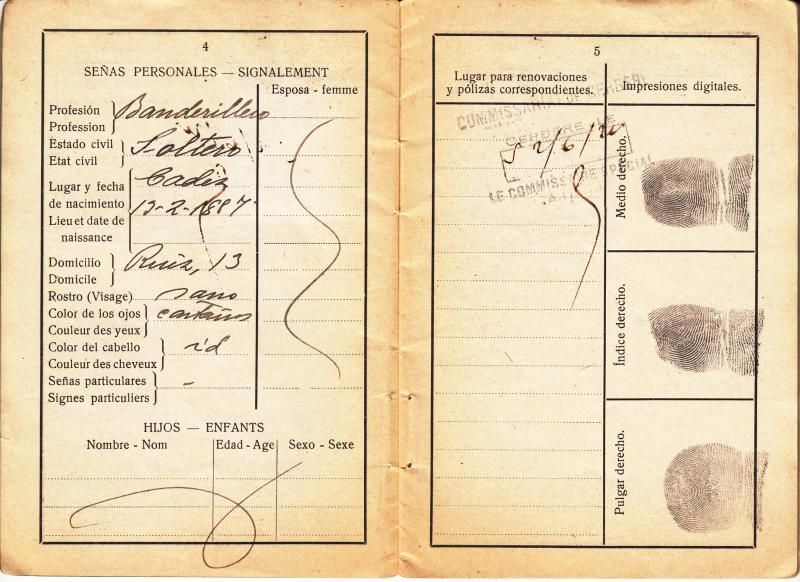 4
SEÑAS PERSONALES — SIGNALEMENT
Esposa - femme
Profesión
Profession
Banderillero
Estado civil
Etat civil
Soltero
Lugar y fecha
de nacimiento
Lieu et date de
naissance
Cadiz
Domicilio
Domicile
Ruiz, 13
Rostro (Visage) sano
Color de los ojos
Couleur des yeux
castaños
Color del cabello
Couleur des cheveux
id
Señas particulares
Signes particuliers
-
HIJOS — ENFANTS
Nombre - Nom
Edad - Age
Sexo - Sexe
5
Lugar para renovaciones
y pólizas correspondientes.
Impresiones digitales.
COMMISSARIAT DE
CERBERE LE
LE COMMISSAIRE SPECIAL
Medio derecho.
Índice derecho.
Pulgar derecho.